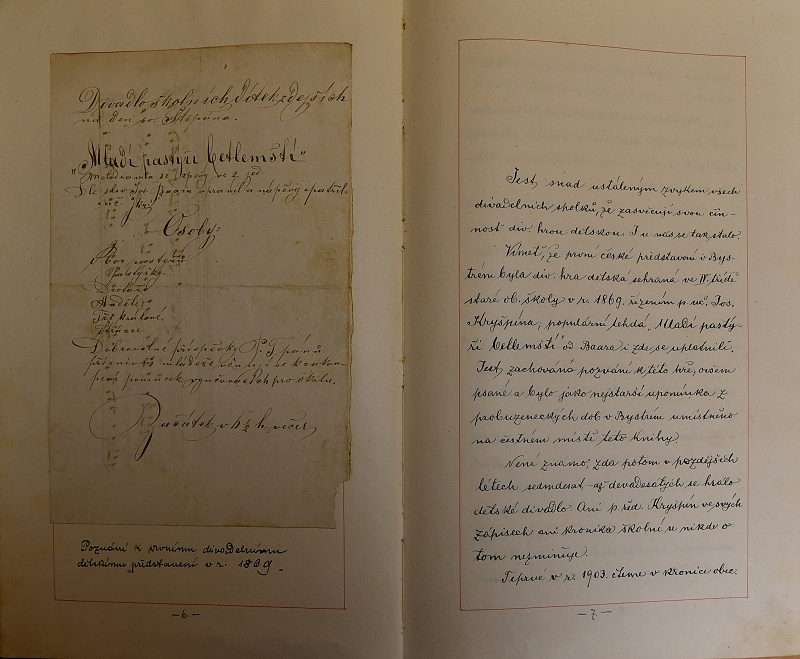 Divadlo školních dítek zdejších
na den sv. Štěpána.
"Mladí pastýři betlemští"
Melodrama se zpěvy ve 2 jed.
Dle slov Jos. Baara upravil a nápěvy opatřil
Osoby:
Sbor pastýřů
Andělé
Tři králové.
Dobrovolné příspěvky P. T. pánů
příznivců mládeže
pomůcek pro školu.
Začátek v ½ h. večer
Pozvání k prvnímu divadelnímu
dětskému představení v r. 1869.
— 6 —
Jest snad ustáleným zvykem všech
divadelních spolků, že zasvěcují svou čin-
nost div. hrou dětskou. I u nás se tak stalo.
Vímeť, že první české představení v Bys-
trém byla div. hra dětská sehraná ve IV. třídě
staré ob. školy v r. 1869. řízením p. uč. Jos.
Kryšpína, populární tehdá „Mladí pastý-
ři betlemští" od Baara i zde se uplatnili.
Jest zachováno pozvání k této hře, ovšem
psané a bylo jako nejstarší upomínka z
probuzeneckých dob v Bystrém umístněno
na čestném místě této knihy.
Není známo, zda potom v pozdějších
létech sedmdesát - až devadesátých se hrálo
dětské divadlo. Ani p. řed. Kryšpín ve svých
zápisech ani kronika školní se nikde o
tom nezmiňuje.
Teprve v r. 1903. čteme v kronice obec.
— 7 —